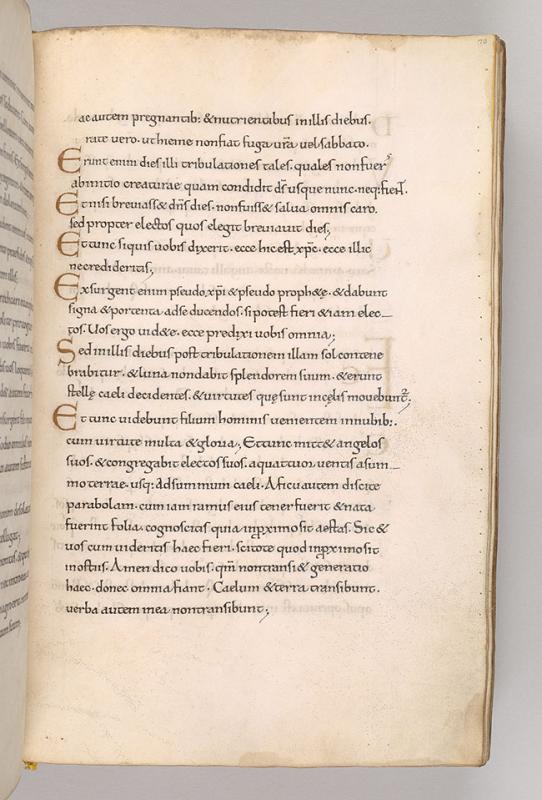 ae autem pregnantib: & nutrientibus in illis diebus.
rate vero. ut hieme non fiat fuga ur̄a uel sabbato.
Erunt enim dies illi tribulationes tales. quales non fuer̄
ab initio creaturae quam condidit d̄s usque nunc. neq; fient.
Et nisi breuiass& dn̄s dies. non fuiss& salua omnis caro.
sed propter electos quos elegit breuiauit dies;
Et tunc siquis uobis dixerit. ecce hic est xp̄c. ecce illic
ne credideritis;
Exsurgent enim pseudo xp̄i & pseudo proph&ę. & dabunt
signa & portenta. ad seducendos. si potest fieri &iam elec-
tos. Uos ergo uid&e. ecce predixi uobis omnia;
Sed in illis diebus post tribulationem illam sol contene
brabitur. & luna non dabit splendorem suum. & erunt
stellę caeli decidentes. & uirtutes quę sunt in cęlis mouebunt̄.
Et tunc uidebunt filium hominis uenientem in nubib:.
cum uirtute multa & gloria; Et tunc mitt& angelos
suos. & congregabit electos suos. a quattuor uentis a sum-
mo terrae. usq; ad summum caeli. A ficu autem discite
parabolam. cum iam ramus eius tener fuerit & nata
fuerint folia. cognoscitis quia in ꝓximo sit aestas. Sic &
uos cum uideritis haec fieri. scitote quod in ꝓximo sit
in ostiis. Amen dico uobis. qm̄ non transi& generatio
haec. donec omnia fiant. Caelum & terra transibunt.
uerba autem mea non transibunt;